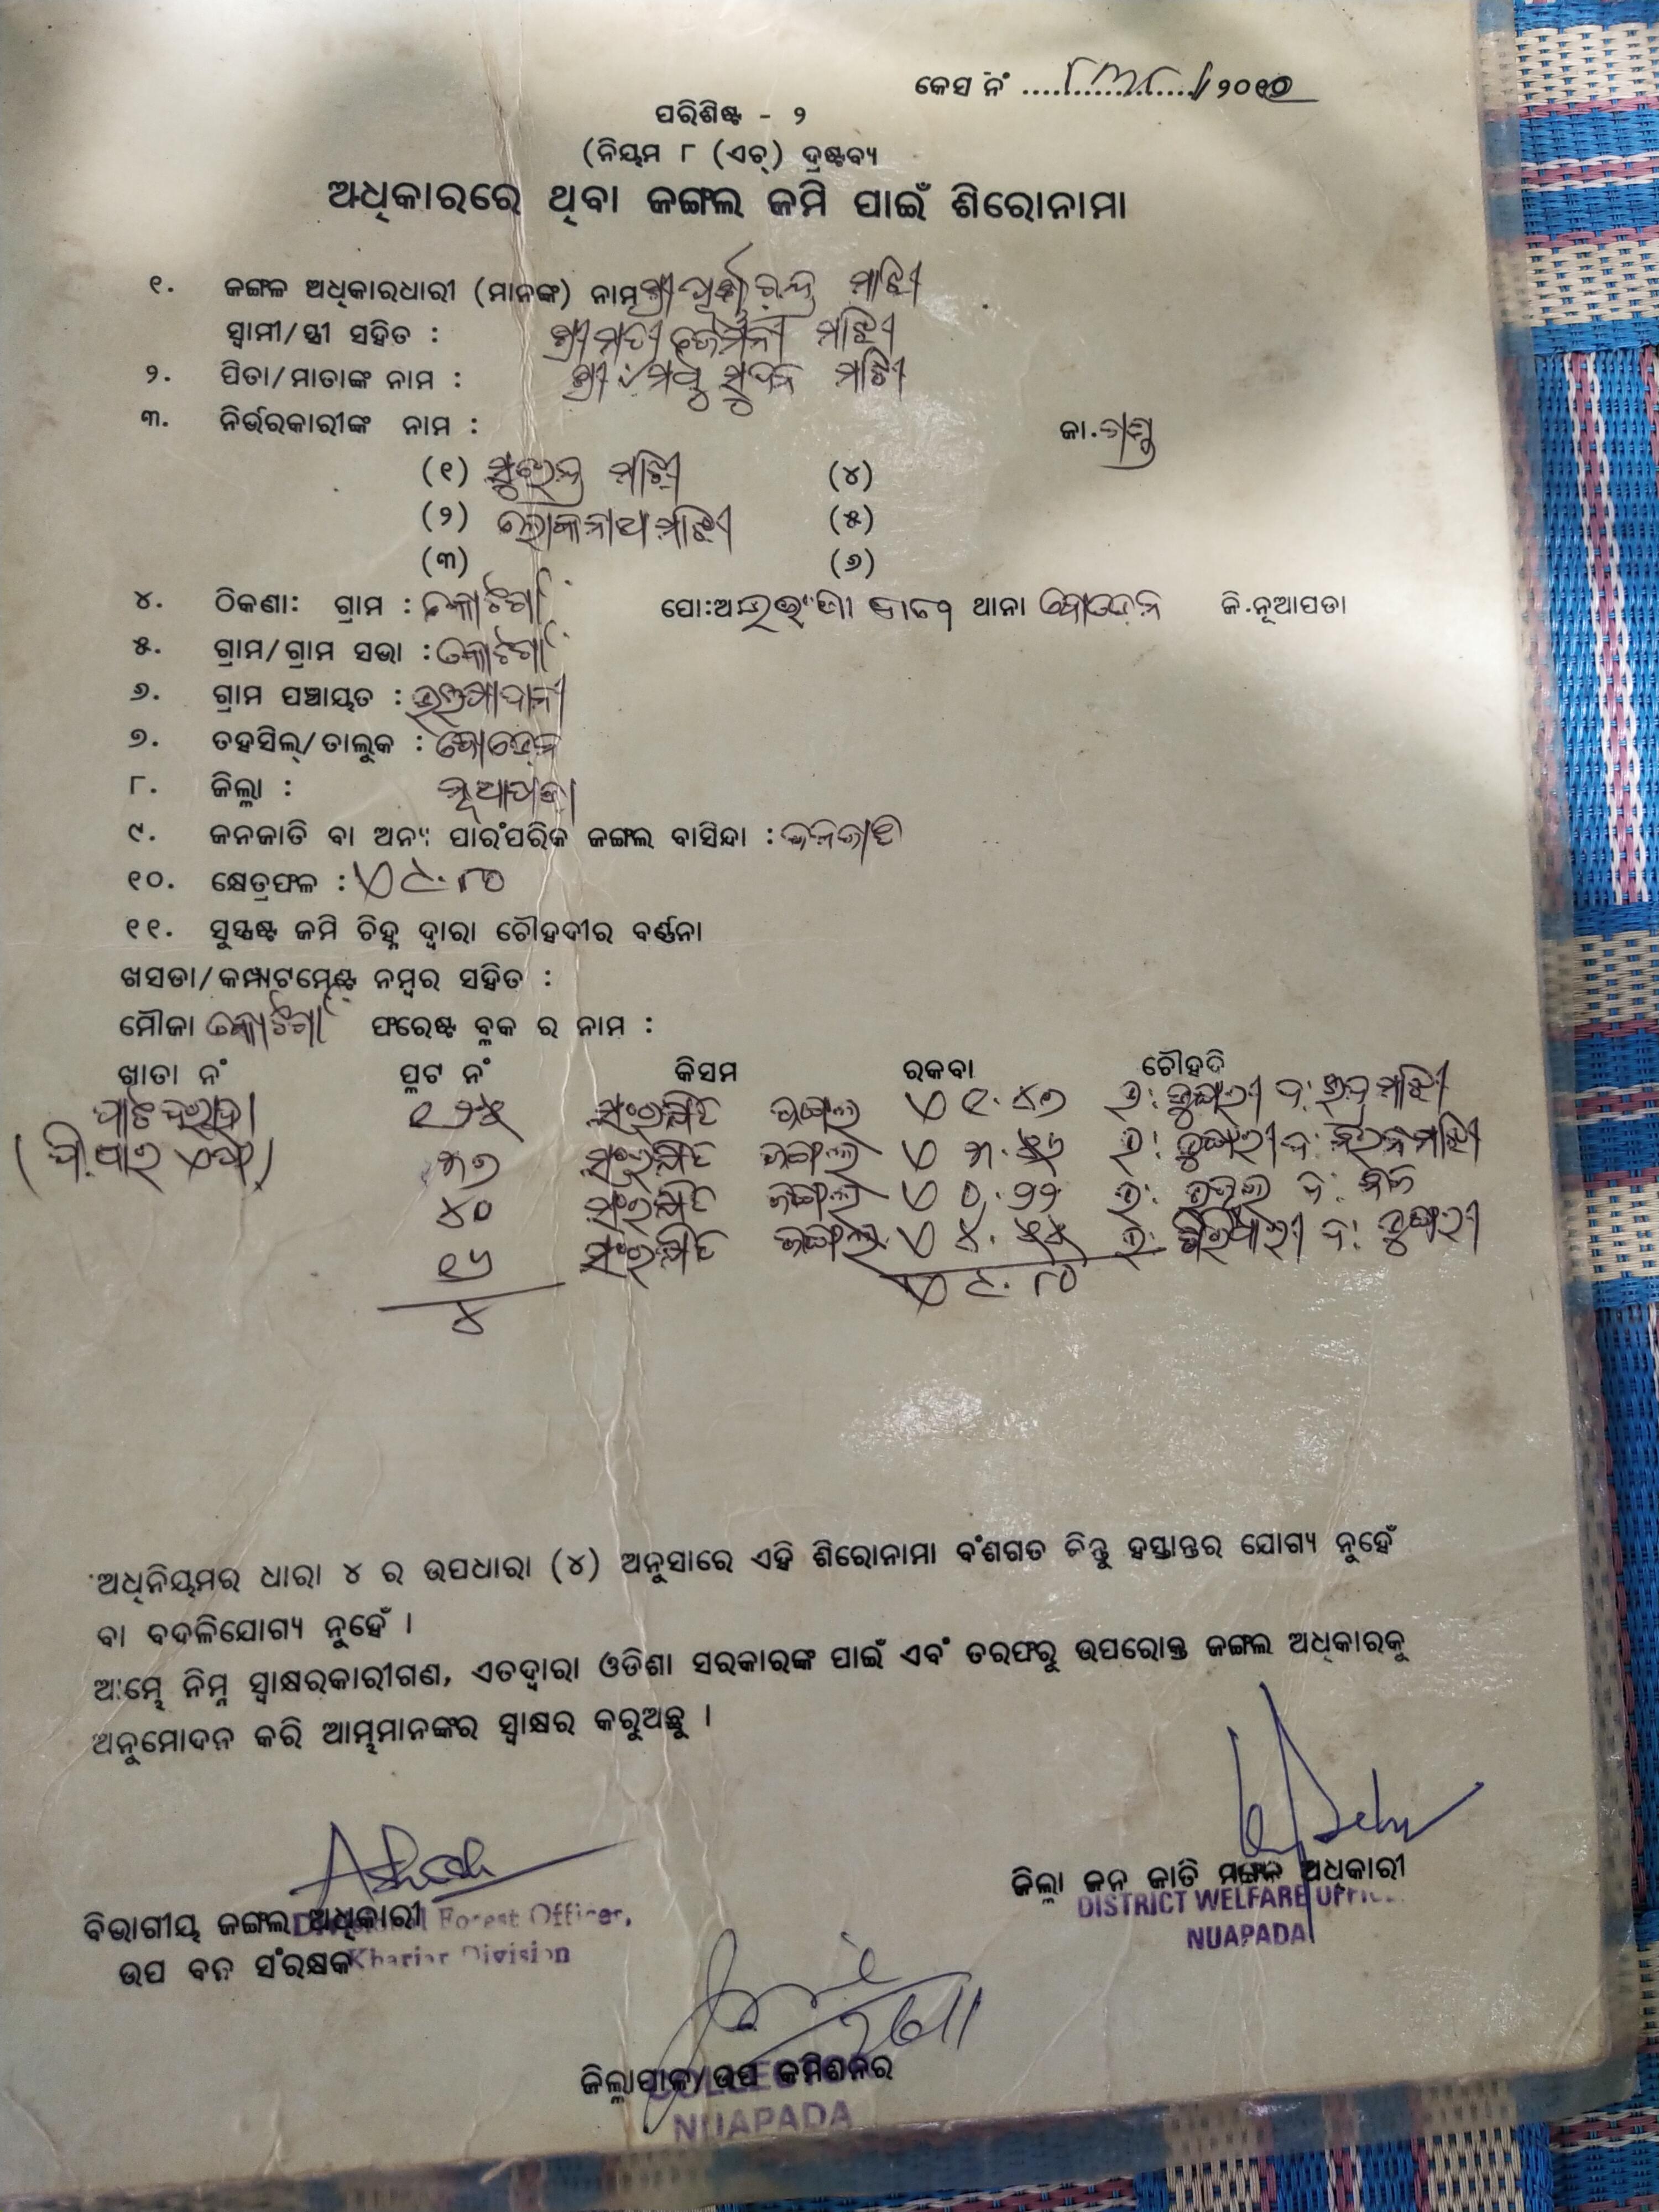 କେସ ନଂ ......୮୩୮....../୨୦୧୦
ପରିଶିଷ୍ଟ - ୨
(ନିୟମ ୮ (ଏଚ୍) ଦ୍ରଷ୍ଟବ୍ୟ
ଅଧିକାରରେ ଥିବା ଜଙ୍ଗଲ ଜମି ପାଇଁ ଶିରୋନାମା
୧. ଜଙ୍ଗଳ ଅଧିକାରଧାରୀ (ମାନଙ୍କ) ନାମ ଶ୍ରୀ ମାଝି
ସ୍ୱାମୀ/ସ୍ତ୍ରୀ ସହିତ : ଶ୍ରୀମତୀ ଜୈମନୀ ମାଝି
୨. ପିତା/ମାତାଙ୍କ ନାମ : ଶ୍ରୀ ମଧୁ ସୁଦନ ମାଝି
୩. ନିର୍ଭରକାରୀଙ୍କ ନାମ : ଜା.ଗଣ୍ଡ
(୧) ସୁରେନ୍ଦ୍ର ମାଝି (୪)
(୨) ଲୋକନାଥ ମାଝି (୫)
(୩) (୬)
୪. ଠିକଣା: ଗ୍ରାମ : କୋଟଗାଁ ପୋ: ଥାନା ବୋଡେନ ଜି.ନୂଆପଡା
୫. ଗ୍ରାମ/ଗ୍ରାମ ସଭା : କୋଟଗାଁ
୬. ଗ୍ରାମ ପଞ୍ଚାୟତ :
୭. ତହସିଲ୍/ତାଲୁକ : ବୋଡେନ
୮. ଜିଲ୍ଲା : ନୂଆପଡା
୯. ଜନଜାତି ବା ଅନ୍ୟ ପାରଂପରିକ ଜଙ୍ଗଲ ବାସିନ୍ଦା : ଜନଜାତି
୧୦. କ୍ଷେତ୍ରଫଳ : ଏ ୯.୮୦
୧୧. ସୁସ୍ପଷ୍ଟ ଜମି ଚିହ୍ନ ଦ୍ୱାରା ଚୌହଦୀର ବର୍ଣ୍ଣନା
ଖସଡା/କମ୍ପାଟମେଣ୍ଟ ନମ୍ବର ସହିତ :
ମୌଜା କୋଟଗାଁ ଫରେଷ୍ଟ ବ୍ଲକ ର ନାମ :
ଖାତା ନଂ ପ୍ଲଟ ନଂ କିସମ ରକବା ଚୌହଦି
ପାଟଦରହା ୧୨୫ ସଂରକ୍ଷିତ ଜଙ୍ଗଲ ଏ ୧.୪୭ ଉ: ଡୁଙ୍ଗୁରୀ ଦ: ମାଝି
(ପି.ଆର ଏଫ) ୩୭ ସଂରକ୍ଷିତ ଜଙ୍ଗଲ ଏ ୩.୫୬ ଉ: ଡୁଙ୍ଗୁରୀ ଦ: ମାଝି
୪୦ ସଂରକ୍ଷିତ ଜଙ୍ଗଲ ଏ ୦.୨୨ ଉ: ଜଙ୍ଗଲ ଦ: ନିଜ
୧୬ ସଂରକ୍ଷିତ ଜଙ୍ଗଲ ଏ ୪.୫୫ ଉ: ଗିରିଧାରୀ ଦ: ଡୁଙ୍ଗୁରୀ
୪ ଏ ୯.୮୦
ଅଧିନିୟମର ଧାରା ୪ ର ଉପଧାରା (୪) ଅନୁସାରେ ଏହି ଶିରୋନାମା ବଂଶଗତ କିନ୍ତୁ ହସ୍ତାନ୍ତର ଯୋଗ୍ୟ ନୁହେଁ
ବା ବଦଳିଯୋଗ୍ୟ ନୁହେଁ ।
ଆମ୍ଭେ ନିମ୍ନ ସ୍ୱାକ୍ଷରକାରୀଗଣ, ଏତଦ୍ୱାରା ଓଡିଶା ସରକାରଙ୍କ ପାଇଁ ଏବଂ ତରଫରୁ ଉପରୋକ୍ତ ଜଙ୍ଗଲ ଅଧିକାରକୁ
ଅନୁମୋଦନ କରି ଆମ୍ଭମାନଙ୍କର ସ୍ୱାକ୍ଷର କରୁଅଛୁ ।
ଜିଲ୍ଲା ଜନ ଜାତି ମଙ୍ଗଳ ଅଧିକାରୀ
DISTRICT WELFARE OFFICER
NUAPADA
ବିଭାଗୀୟ ଜଙ୍ଗଲ ଅଧିକାରୀ
Divisional Forest Officer,
ଉପ ବନ ସଂରକ୍ଷକ
Khariar Division
ଜିଲ୍ଲାପାଳ/ଉପ କମିଶନର
COLLECTOR
NUAPADA